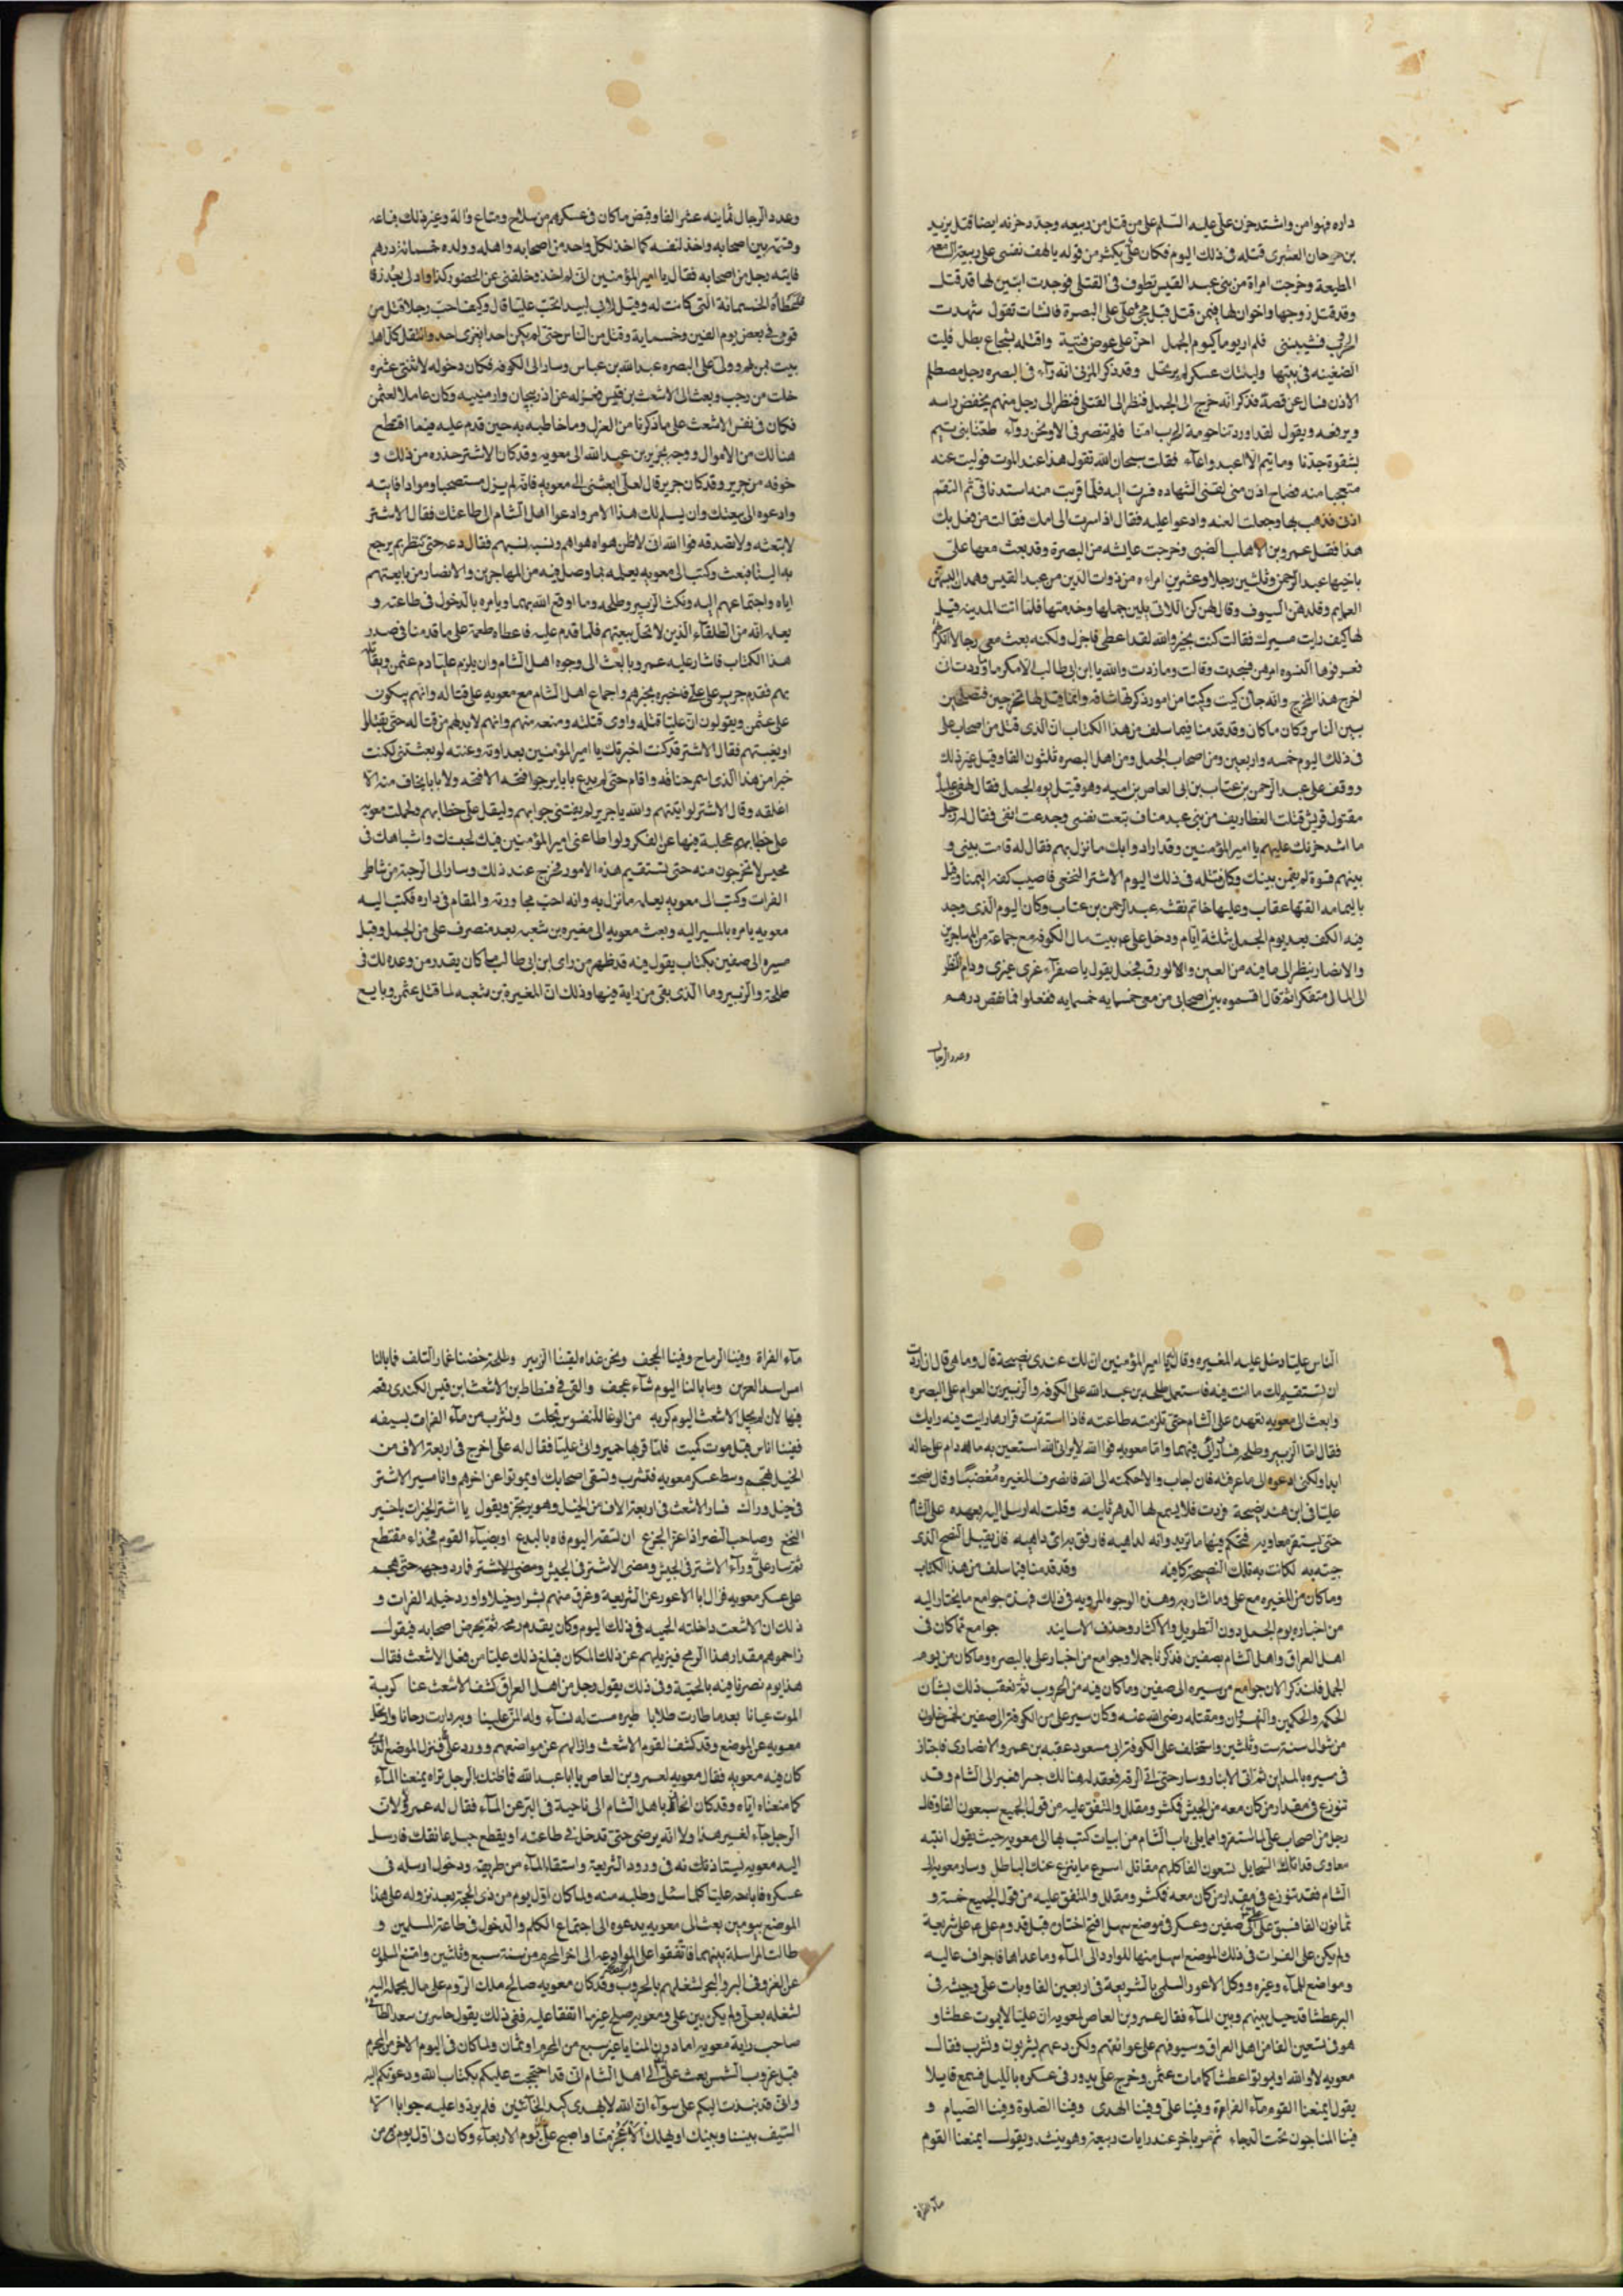 داره فهوامن واشتد حزن علي عليه السلم على من قتل من ربيعه وجدد حزنه ايضا قتل يزيد
بن صوحان العبدى قتله فى ذلك اليوم فكان على يكثر من قوله يا لهف نفسى على ربيعة السامعة
المطيعة وخرجت امراة من بنى عبد القيس تطوف فى القتلى فوجدت ابنين لها قد قتلا
وقد قتل زوجها واخوان لها فيمن قتل قبل مجئ على البصرة فانشات تقول شهدت
الحرب فشيبتنى فلم ار يوما كيوم الجمل احن على عوض فتية واقتله لشجاع بطل فليت
الضغينه فى بيتها وليتك عسكر لم يرتحل وقد ذكر المزنى انه رآء فى البصره رجل مصطلم
الاذن فسال عن قصة فذكر انه خرج الى الجمل فنظر الى القتلى فنظر الى رجل منهم يخفض راسه
ويرفعه ويقول لقد اوردتنا حومة الحرب امنا فلم تنصرف الا ونحن روآء طعنا بنى تيم
بشقوة جدنا وما تيم الا اعبد واماء فقلت سبحان الله تقول هذا عند الموت فوليت عنه
متعجبا منه فصاح ادن منى لقنى الشهاده فصرت اليه فلما قربت منه استدنانى ثم التقم
اذنى فذهب بها وجعلت العنه وادعوا عليه فقال اذا صرت الى امك فقالت من فعل بك
هذا فقل عمرو بن الاهلب الضبى وخرجت عايشه من البصرة وقد بعث معها على
باخيها عبد الرحمن وثلثين رجلا وعشرين امراءه من ذوات الدين من عبد القيس وهمدان البسهن
العمايم وقلدهن السيوف وقال لهن كن اللاتى يلين حملها وخدمتها فلما اتت المدينه قيل
لها كيف رايت مسيرك فقالت كنت بخير والله لقد اعطى فاجزل ولكنه بعث معى رجالا انكرتهم
فعرفوها النسوه امرهن فسجدت وقالت وما زدت والله يا ابن ابى طالب الا كرما وددت ان
اخرج هذا المخرج وانه حان كيت وكيتا من امور ذكرتها شاقه وانما قيل لها تخرجين فتصلحين
بين الناس فكان ما كان وقد قدمنا فيما سلف من هذا الكتاب ان الذى قتل من اصحاب على
فى ذلك اليوم خمسه واربعين ومن اصحاب الجمل ومن اهل البصره ثلثون الفا وقيل غير ذلك
ووقف على عبد الرحمن بن عتاب بن ابى العاص بن اميه وهو قتيل يوم الجمل فقال لهفى عليك
مقتول قريش قتلت الغطاريف من بنى عبد مناف بتعت نفسى وجدعت انفى فقال له رجل
ما اشد حزنك عليهم يا امير المؤمنين وقد ارادوا بك ما نزل بهم فقال له قامت بينى و
بينهم قسوة لم يقمن بينك وكان قتله فى ذلك اليوم الاشتر النخعى فاصيب كفه اليمنا وقيل
باليمامه القتها عقاب وعليها خاتم نقشه عبد الرحمن بن عتاب وكان اليوم الذى وجد
فيه الكف بعد يوم الجمل ثلثة ايام ودخل على عم بيت مال الكوفه مع جماعة من المهاجرين
والانصار ينظر الى ما فيه من العين والورق فجعل يقول يا صفرآء غرى غيرى ودام النظر
الى المال متفكرا ثم قال اقسموه بين اصحابى من معى خمسمايه خمسمايه ففعلوا فما نقص درهم
وعدد الرجال
وعدد الرجال ثمانيه عشر الفا وقبض ما كان فى عسكرهم من سلاح ومتاع وآلة وغير ذلك فباعه
وقسمه بين اصحابه واخذ لنفسه كما اخذ لكل واحد من اصحابه واهله وولده خمسمائة درهم
فاتيه رجل من اصحابه فقال يا امير المؤمنين انى لم اخذ وخلفنى عن الحضور كذا وادلى بعذر فا
فاعطاه الخمسمائة التى كانت له وقيل لابى لبيد اتحب عليا قال وكيف احب رجلا قتل من
قومى فى بعض يوم الفين وخسماية وقتل من الناس حتى لم يكن احد ليعزى احد واشتغل كل اهل
بيت بمن لهم وولى على البصره عبد الله بن عباس وسار الى الكوفه فكان دخوله لاثنتى عشره
خلت من رجب وبعث الى الاشعث بن قيس فعزله عن اذربيجان وارمينيه وكان عاملا لعثمن
فكان فى نفس الاشعث على ما ذكرنا من العزل وما خاطبه به حين قدم عليه فيما اقتطع
هنالك من الاموال ووجه بجرير بن عبد الله الى معويه وقد كان الاشتر حذره من ذلك و
خوفه من جرير وقد كان جرير قال لعلى ابعثنى الى معويه فانه لم يزل مستنصحا وموادا فاتيه
وادعوه الى بيعتك وان يسلم لك هذا الامر وادعوا اهل الشام الى طاعتك فقال الاشتر
لا تبعثه ولا تصدقه فوا الله انى لاظن هواه هواهم ونيته نيتهم فقال دعه حتى ننظر بم يرجع
به الينا فبعث وكتب الى معويه يعلمه بما وصل فيه من المهاجرين والانصار من بايعتهم
اياه واجتماعهم اليه ونكث الزبير وطلحه وما اوقع الله بهما ويامره بالدخول فى طاعته و
يعلمه انه من الطلقآء الذين لا تحل بيعتهم فلما قدم عليه فاعطاه طعمة على ما قدمنا فى صدر
هذا الكتاب فاشار عليه عمرو بابعث الى وجوه اهل الشام وان يلزم عليا دم عثمن ويقاتله
بهم فقدم جرير على على فاخبره بخبرهم واجماع اهل الشام مع معويه على قتاله وانهم يبكون
على عثمن ويقولون ان عليا قتله واوى قتلته ومنعه منهم وانهم لا بد لهم من قتاله حتى يقتلوه
او يغيبهم فقال الاشتر قد كنت اخبرتك يا امير المؤمنين بعداوته وعنته لو بعثتنى لكنت
خيرا من هذا الذى اسم خناقه واقام حتى لم يدع بابا يرجوا فتحه الا فتحه ولا بابا يخاف منه الا
اغلقه وقال الاشتر لو اتيتهم والله يا جرير لم يعيننى جوابهم ولم يثقل على خطابهم ولحملت معويه
على خطا بهم عجلة فيها عن الفكر ولو اطاعنى امير المؤمنين فيك لحبسك واشباهك فى
محبس لا تخرجون منه حتى تستقيم هذه الامور فخرج عند ذلك وسار الى الرحبة من شاطى
الفرات وكتب الى معويه يعلمه ما نزل به وانه احب مجاورته والمقام فى داره فكتب اليه
معويه يامره بالمسير اليه وبعث معويه الى مغيره بن شعبه بعد منصرف على من الجمل وقبل
مسيره الى صفين بكتاب يقول فيه قد ظهر من راى ابن ابى طالب ما كان يقدر من وعده لك فى
طلحه والزبير وما الذى بقى من رايه فيها وذلك ان المغيره بن شعبه لما قتل عثمن وبايع
الناس عليا دخل عليه المغيره وقال له يا امير المؤمنين ان لك عندى نصيحة قال وما هى قال ان اردت
ان يستقيم لك ما انت فيه فاستعمل طلحه بن عبد الله على الكوفه والزبير بن العوام على البصره
وابعث الى معويه بعهده على الشام حتى تلزمه طاعته فاذا استقرت قرارها رايت فيه رايك
فقال اما الزبير وطلحه فسارى رائى فيهما واما معويه فوا الله لا يرانى الله استعين به ما دام على حاله
ابدا ولكنى ادعوه الى ما عرفته فان اجاب والا حكمته الى الله فانصرف المغيره مغضبا وقال نصحت
عليا فى ابن هند نصيحة فردت فلا يسمع لها الدهر ثانيه وقلت له ارسل اليه بعهده على الشام
حتى يستقر معاويه فتحكم فيها ما تريد وانه لداهيه فارفق به اى داهيه فلم يقبل النصح الذى
جيته به لكانت به تلك النصيحة كافيه وقد قدمنا فيما سلف من هذا الكتاب
وما كان من المغيره مع على وما اشار به وهذه الوجوه المرويه فى ذلك فهذه جوامع ما يختار اليه
من اخباره يوم الجمل دون التطويل والاكثار وحذف الاسانيد جوامع مما كان فى
اهل العراق واهل الشام بصفين قد ذكرنا جملا وجوامع من اخبار على بالبصره وما كان من يوم
الجمل فلنذكر الان جوامع من سيره الى صفين وما كان فيه من الحروب ثم نعقب ذلك بشان
الحكم والحكمين والنهروان ومقتله رضى الله عنه وكان سير على من الكوفة الى صفين لخمس خلون
من شوال سنة ست وثلثين واستخلف على الكوفة ابى مسعود عقبه بن عمرو الانصارى فاجتاز
فى مسيره بالمداين ثم اتى الانبار وسار حتى اتى الرقه فعقد له هنالك جسرا فعبر الى الشام وقد
تنوزع فى مقدار من كان معه من الجيش فكثر ومقلل والمتفق عليه من قول الجميع سبعون الفا وقال
رجل من اصحاب على لما استقروا مما يلى باب الشام من ابيات كتب بها الى معويه حيث يقول اثبت
معاوى قد اتاك الحافل تسعون الفا كلهم مقاتل اسرع ما ينزع عنك الباطل وسار معويه الى
الشام فقد تنوزع فى مقدار من كان معه فكثر ومقلل والمتفق عليه من قول الجميع خمسة و
ثمانون الفا فسبق عليا الى صفين وعسكر فى موضع سهل افتح اختان قبل قدوم على عم على شريعة
ولم يكن على الفرات فى ذلك الموضع اسهل منها للوارد الى المآء وما عداها فاجراف عاليه
ومواضع للمآء وعره ووكل الاعور السلمى بالشريعة فى اربعين الفا وبات على وجيشه فى
البر عطشا قد حيل بينهم وبين المآء فقال عمرو بن العاص لمعويه ان عليا لا يموت عطشا و
هو فى تسعين الفا من اهل العراق وسيوفهم على عواتقهم ولكن دعهم يشربون ونشرب فقال
معويه لا والله او يموتوا عطشا كما مات عثمن وخرج على يدور فى عسكره بالليل فسمع قايلا
يقول ايمنعنا القوم مآء الفراة وفينا على وفينا الهدى وفينا الصلوة وفينا الصيام و
فينا المناجون تحت الدجاء ثم مر باخر عند رايات ربيعة وهو ينشد ويقول ايمنعنا القوم
مآء الفراة
مآء الفراة وفينا الرماح وفينا الحجف ونحن غداه لقينا الزبير وطلحة خضنا غمار التلف فما بالنا
امس اسد العرين وما بالنا اليوم شآء عجف والقى فى فسطاط بن الاشعث ابن قيس الكندى رقعه
فيها لان لم يجل الاشعث اليوم كربة من الموت فيها للنفوس تجلت ونشرب من مآء الفرات بسيفه
فهبنا اناس قبل موت كميت فلما قراها حمير واتى عليا فقال له على اخرج فى اربعة الاف من
الخيل فهجم وسط عسكر معويه فتشرب وتسقى اصحابك او يموتوا عن اخرهم وانا مسير الاشتر
فى خيل وراك فسار الاشعث فى اربعة الاف من الخيل وهو يرتجز ويقول يا اشتر الخيرات يا خير
النخع وصاحب النصر اذا عز الجزع ان تسقنا اليوم فما هو بالبدع او يضمآء القوم فخذاء مقتطع
ثم سار على ورآء الاشتر فى الجيش ومضى الاشتر فى الجيش ومضى الاشتر فما رد وجهه حتى هجم
على عسكر معويه فزال ابا الاعور عن الشريعة وغرق منهم بشرا وخيلا واورد خيله الفرات و
ذلك ان الاشعث داخلته الحميه فى ذلك اليوم وكان يقدم رمحه ثم يحرض اصحابه فيقول
زاحموهم مقدار هذا الرمح فيزيلهم عن ذلك المكان فبلغ ذلك عليا من فعل الاشعث فقال
هذا يوم نصرنا فيه بالحمية وفى ذلك يقول رجل من اهل العراق كشف الاشعث عنا كربة
الموت عيانا بعد ما طارت طلابا طيره مست له نسآء وله المن علينا وبه دارت رحانا وارتحل
معويه عن الموضع وقد كشف القوم الاشعث وازالهم عن مواضعهم وورد على فنزل الموضع الذى
كان فيه معويه فقال معويه لعمرو بن العاص يا ابا عبد الله فما ظنك بالرجل تراه يمنعنا المآء
كما منعناه اياه وقد كان انحاز باهل الشام الى ناحية فى البر عن المآء فقال له عمرو لا ان
الرجل جآء لغير هذا ولا انه يرضى حتى تدخل فى طاعته او يقطع حبل عاتقك فارسل
اليه معويه يستاذنه فى ورود الشريعة واستقا المآء من طريقه ودخول ارسله فى
عسكره فاباحه عليا كلما سئل وطلبه منه ولما كان اول يوم من ذى الحجة بعد نزوله على هذا
الموضع بيومين بعث الى معويه يدعوه الى اجتماع الكلمه والدخول فى طاعة المسلمين و
طالت المراسله بينهما فاتفقوا على الموادعه الى اخر المحرم من سنة سبع وثلثين وامتنع المسلمون
عن الغزو فى البر والبحر لشغلهم بالحروب وقد كان معويه صالح ملك الروم على مال يحمله اليه
لشغله بعلى ولم يكن بين على ومعويه صلح غير ما اتفقا عليه ففى ذلك يقول حابس بن سعد الطائى
صاحب راية معويه اما دون المنايا غير سبع من المحرم او ثمان ولما كان فى اليوم الاخر من المحرم
قبل غروب الشمس بعث على الى اهل الشام انى قد احتججت عليكم بكتاب الله ودعوتكم اليه
وانى قد نبذت اليكم على سوآء ان الله لا يهدى كيد الخآئنين فلم يردوا عليه جوابا الا
السيف بيننا وبينك او يهلك الاعجز منا واصبح على يوم الاربعآء وكان فى اول يوم من